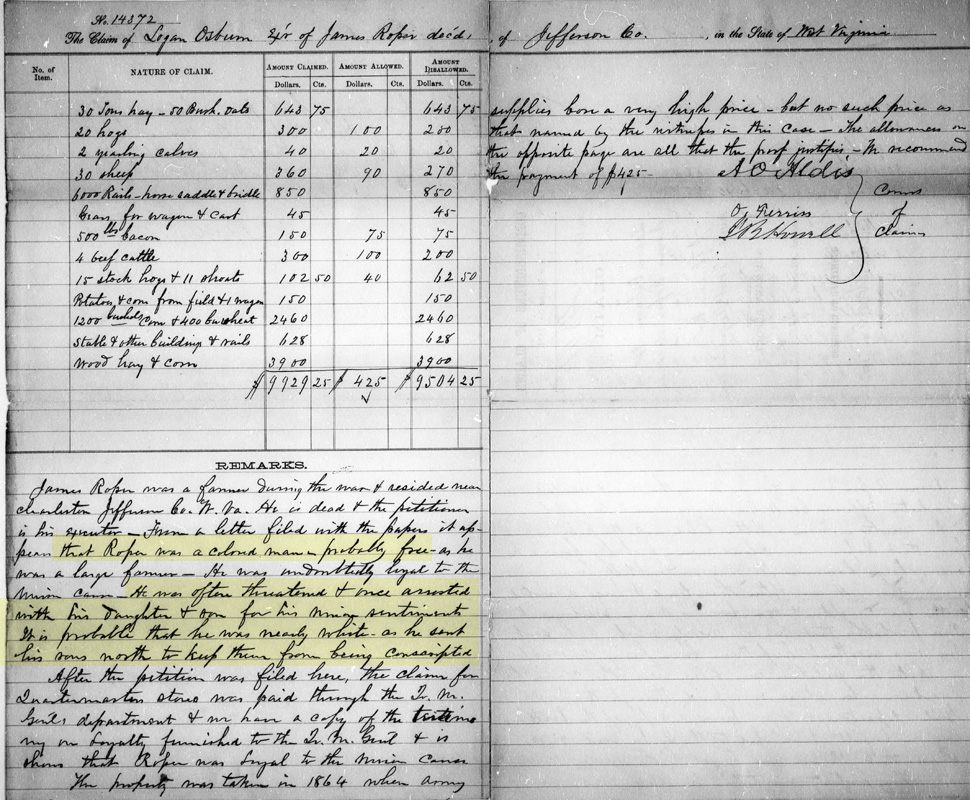 No. 14372
The Claim of Logan Osburn Ex'r of James Roper dec'd, of Jefferson Co. , in the State of West Virginia.
No. of Item. NATURE OF CLAIM. AMOUNT CLAIMED. AMOUNT ALLOWED. AMOUNT DISALLOWED.
Dollars. Cts. Dollars. Cts. Dollars. Cts.
30 Tons hay - 50 Bush. oats 643 75 643 75
20 hogs 300 100 200
2 yearling calves 40 20 20
30 sheep 360 90 270
6000 Rails - horse saddle & bridle 850 850
Gears for wagon & cart 45 45
500 lbs bacon 150 75 75
4 beef cattle 300 100 200
15 stock hogs & 11 shoats 102 50 40 62 50
Potatoes & corn from field & 1 wagon 150 150
1200 bushels corn & 400 bu wheat 2460 2460
Stable & other buildings & rails 628 628
Wood hay & corn 3900 3900
$ 9929 25 $ 425 $ 9504 25
REMARKS.
James Roper was a farmer during the war & resided near
Charleston Jefferson Co. W. Va. He is dead & the petitioner
is his executor - From a letter filed with the papers it ap-
pears that Roper was a colored man - probably free - as he
was a large farmer - He was undoubtedly loyal to the
Union cause - He was often threatened & once arrested
with his daughter & son for his Union sentiments
It is probable that he was nearly white - as he sent
his sons north to keep them from being conscripted
After the petition was filed here, the claim for
Quartermasters stores was paid through the Qr. M.
Genl's department & we have a copy of the testimo
ny on loyalty furnished to the Qr. M. Genl & it
shows that Roper was loyal to the Union cause
The property was taken in 1864 when army
supplies bore a very high price - but no such price as
that named by the witnesses in this case - The allowances on
the opposite page are all that the proof justifies - We recommend
the payment of $425
A O Aldis
O. Ferriss
J B Howell
Comrs
of
Claims